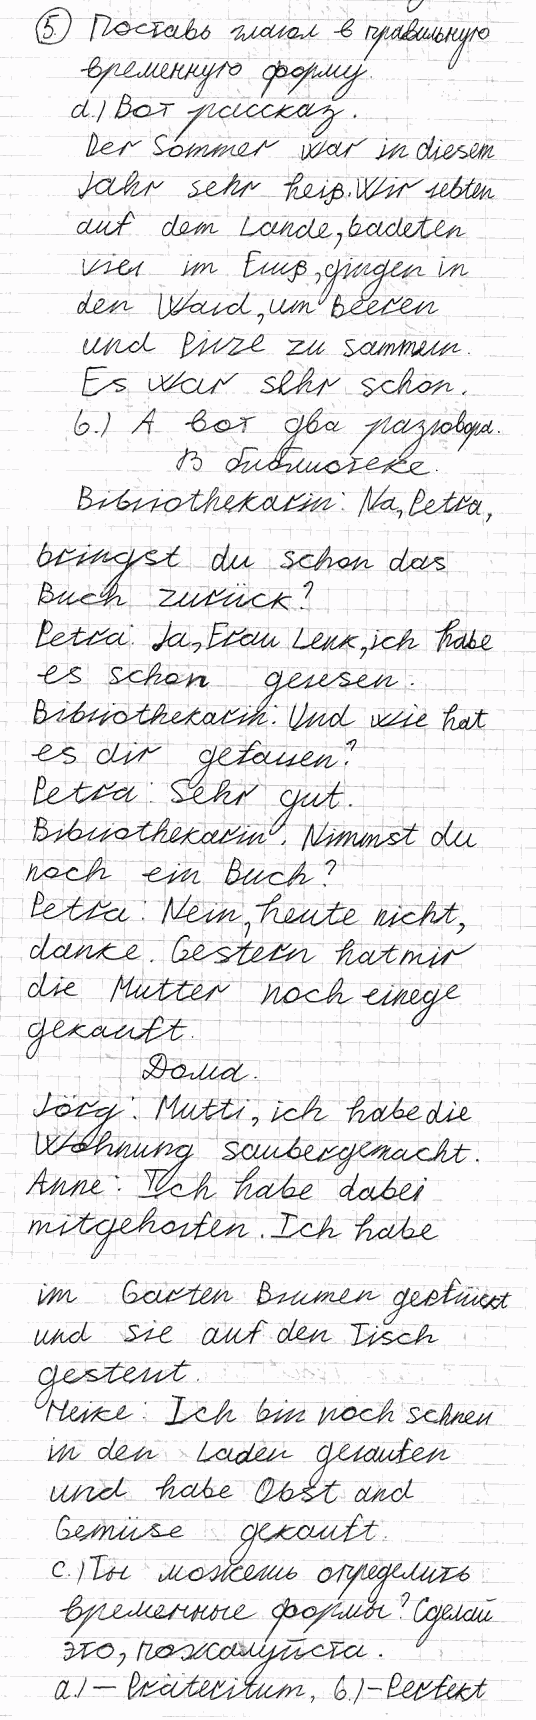 ⑤ Поставь глагол в правильную
временную форму.
а.) Вот рассказ.
Der Sommer war in diesem
Jahr sehr heiß. Wir lebten
auf dem Lande, badeten
viel im Fluß, gingen in
den Wald, um Beeren
und Pilze zu sammeln.
Es war sehr schon.
b.) А вот два разговора.
В библиотеке.
Bibliothekarin: Na, Petra,
bringst du schon das
Buch zurück?
Petra: Ja, Frau Lenk, ich habe
es schon gelesen.
Bibliothekarin: Und wie hat
es dir gefallen?
Petra: Sehr gut.
Bibliothekarin. Nimmst du
noch ein Buch?
Petra: Nein, heute nicht,
danke. Gestern hat mir
die Mutter noch einege
gekauft.
Дома.
Jörg: Mutti, ich habe die
Wohnung saubergemacht.
Anne: Ich habe dabei
mitgeholfen. Ich habe
im Garten Blumen gepflückt
und sie auf den Tisch
gestellt.
Meike: Ich bin noch schnell
in den Laden gelaufen
und habe Obst and
Gemüse gekauft.
c.) Ты можешь определить
временные формы? Сделай
это, пожалуйста.
a.) – Präteritum, b.) – Perfekt